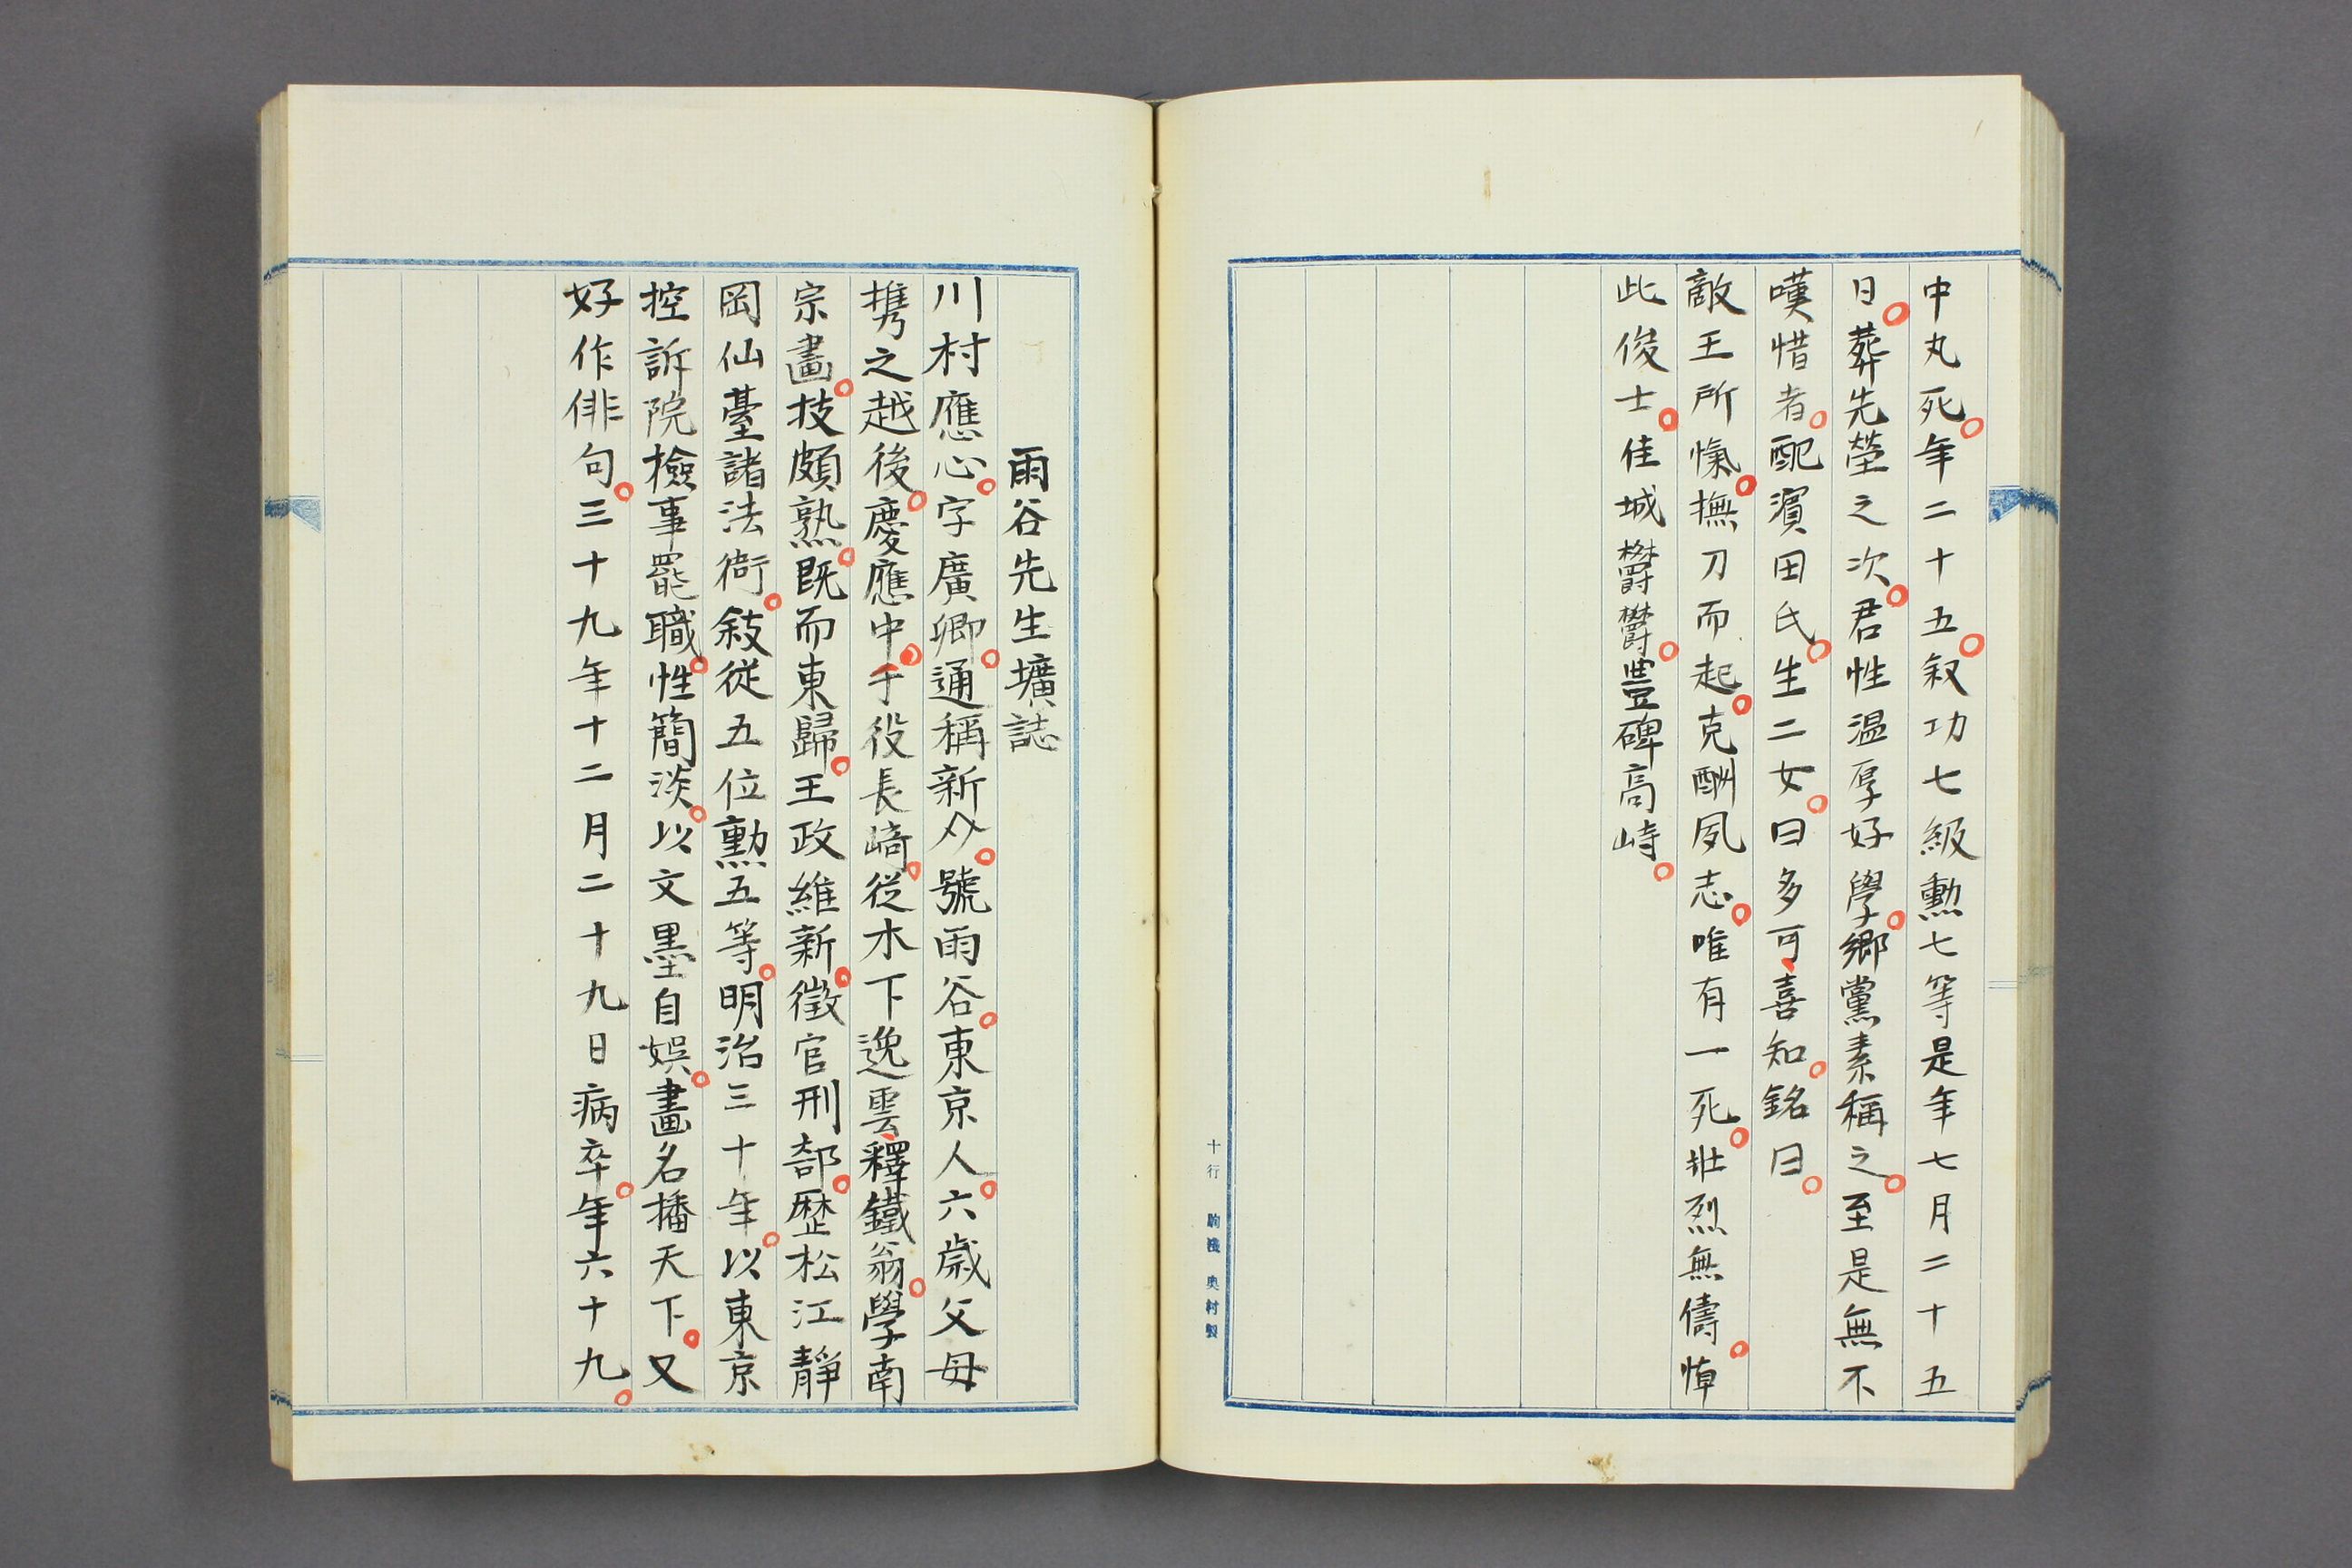 中丸死。年二十五。叙功七級勲七等是年七月二十五
日。葬先塋之次。君性温厚好學。郷黨素稱之。至是無不
嘆惜者。配濱田氏。生二女。曰多可、喜知。銘曰。
敵王所愾。撫刀而起。克酬夙志。唯有一死。壯烈無儔。悼
此俊士。佳城欝欝。豊碑高峙。
十行 奥村製
雨谷先生壙誌
川村應心。字廣卿。通稱新〓。號雨谷。東京人。六歳父母
携之越後。慶應中。于役長崎。從木下逸雲、釋鐵翁。學南
宗畫。技頗熟。既而東歸。王政維新。徴官刑部。歴松江靜
岡仙臺諸法衙。敍從五位勲五等。明治三十年。以東京
控訴院檢事罷職。性簡淡。以文墨自娯。畫名播天下。又
好作俳句。三十九年十二月二十九日病卒。年六十九。